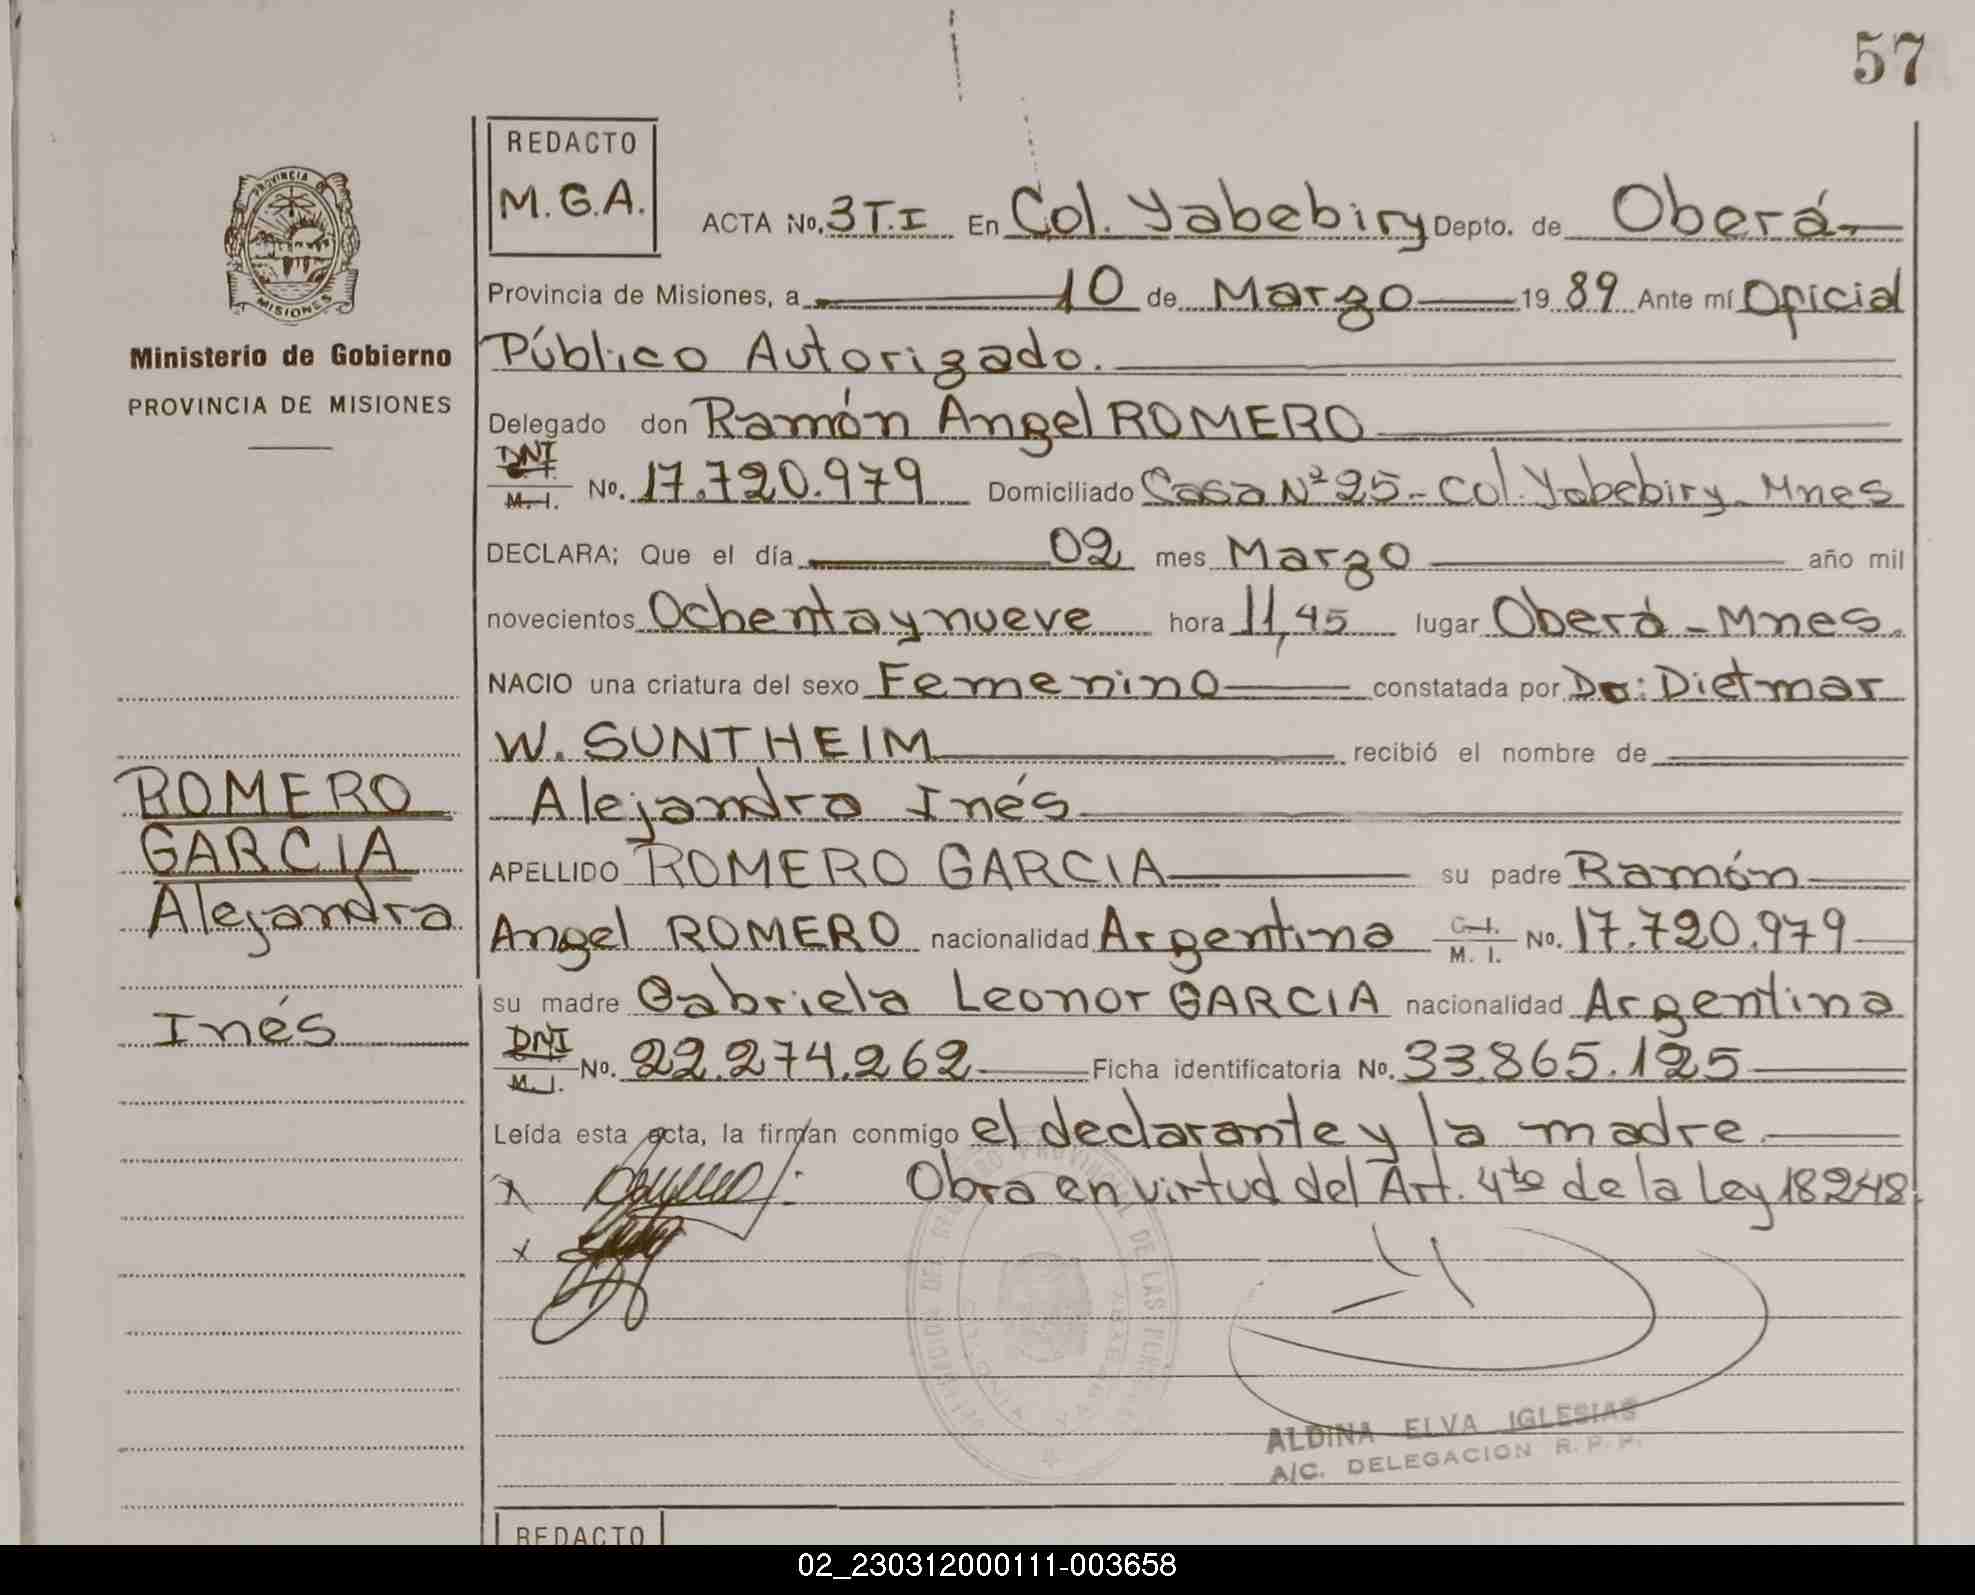 57
REDACTO
M.G.A.
PROVINCIA DE
MISIONES
Ministerio de Gobierno
PROVINCIA DE MISIONES
ACTA No. 3 T.I En Col. Yabebiry Depto. de Oberá
Provincia de Misiones, a 10 de Marzo 19 89 Ante mí Oficial
Público Autorizado.
Delegado don Ramón Angel ROMERO
DNI
M. I. No. 17.720.979 Domiciliado Casa Nº 25 - Col. Yabebiry - Mnes
DECLARA; Que el día 02 mes Marzo año mil
novecientos Ochenta y nueve hora 11,45 lugar Oberá - Mnes.
NACIO una criatura del sexo Femenino constatada por Dr: Dietmar
W. SUNTHEIM recibió el nombre de
Alejandra Inés
APELLIDO ROMERO GARCIA su padre Ramón
Angel ROMERO nacionalidad Argentina C. I. M. I. No. 17.720.979
su madre Gabriela Leonor GARCIA nacionalidad Argentina
DNI
M. I. No. 22.274.262 Ficha identificatoria No. 33.865.125
Leída esta acta, la firman conmigo el declarante y la madre.
Obra en virtud del Art. 4to de la Ley 18248.
x
x
ROMERO
GARCIA
Alejandra
Inés
ALDINA ELVA IGLESIAS
A/C. DELEGACION R. P. P.
REDACTO
02_230312000111-003658